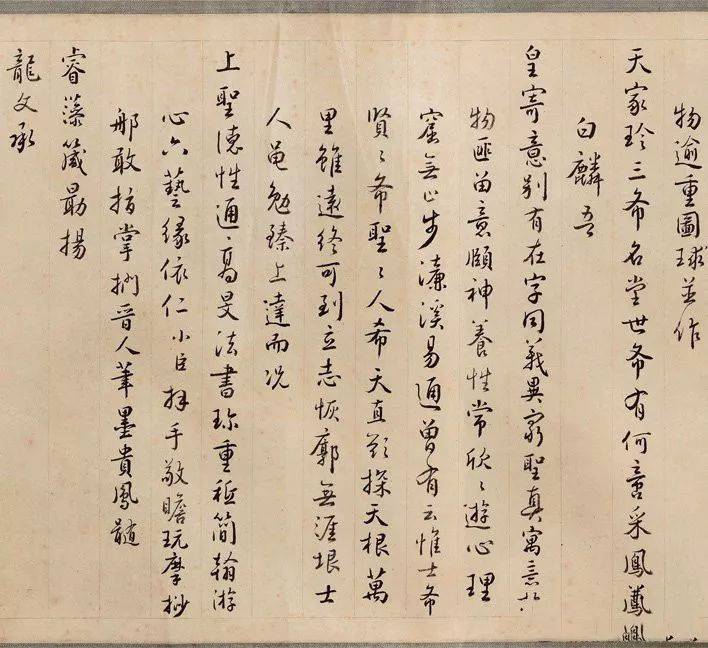 物逾重圖球並作
天家珍三希名堂世希有何啻采鳳
白麟吾
皇寄意別有在字同義異窮聖真寓意於
物匪留意頤神養性常欣〻遊心理
窟無止步濂溪易通曾有云惟士希
賢〻希聖〻人希天直欲探天根萬
里雖遠終可到立志恢廓無涯垠士
人黽勉臻上達而況
上聖德性通高旻法書珍重秪簡翰游
心六藝緣依仁小臣拜手敬瞻玩摩挲
那敢指掌捫晉人筆墨貴鳳髓
睿藻箴勗揚
龍文承